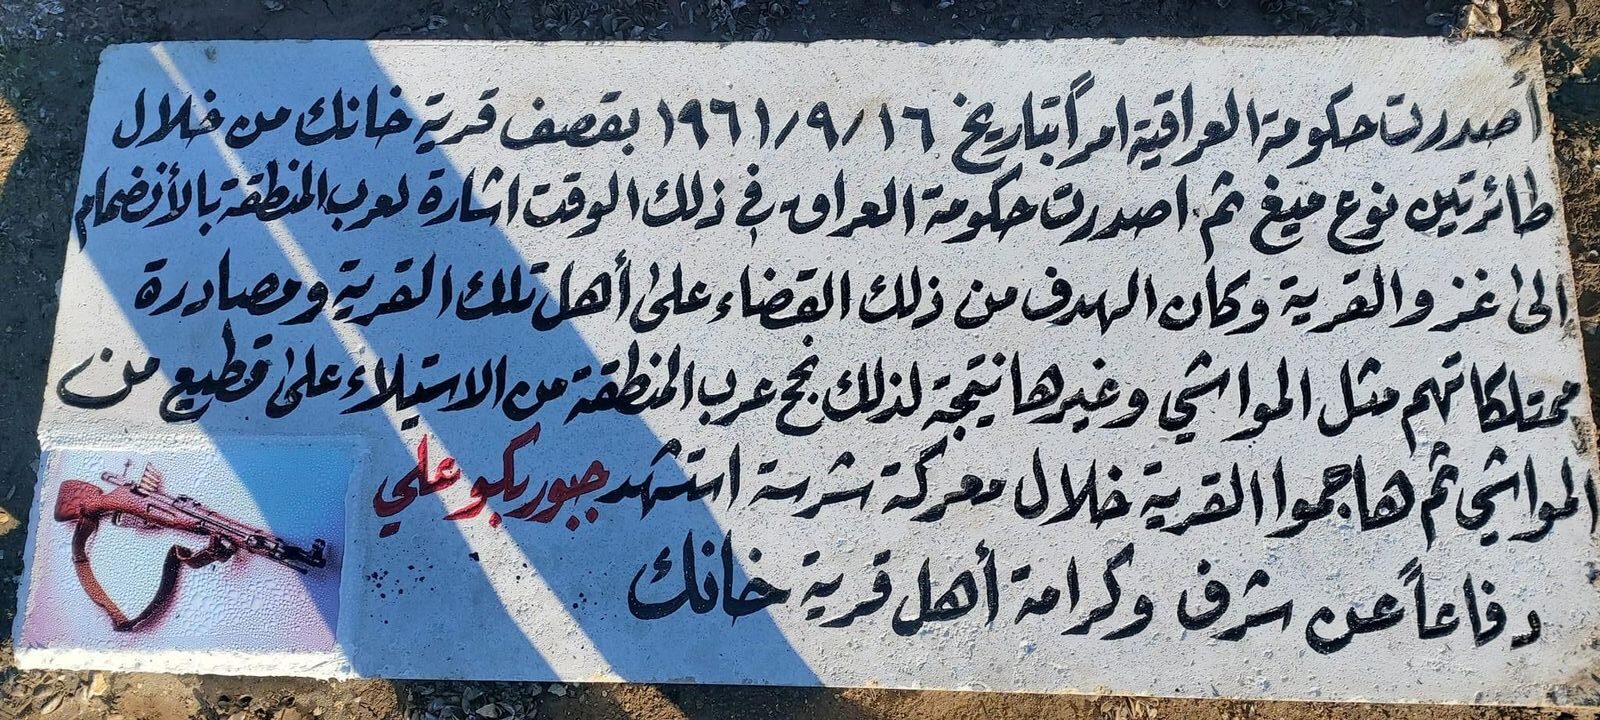 أصدرت حكومة العراقية امراً بتاريخ ١٩٦١/٩/١٦ بقصف قرية خانك من خلال
طائرتين نوع ميغ ثم اصدرت حكومة العراق في ذلك الوقت اشارة لعرب المنطقة بالأنضمام
إلى غزو القرية وكان الهدف من ذلك القضاء على أهل تلك القرية ومصادرة
ممتلكاتهم مثل المواشي وغيرها نتيجة لذلك نجح عرب المنطقة من الاستيلاء على قطيع من
المواشي ثم هاجموا القرية خلال معركة شرسة استشهد جبور بكو علي
دفاعاً عن شرف وكرامة أهل قرية خانك